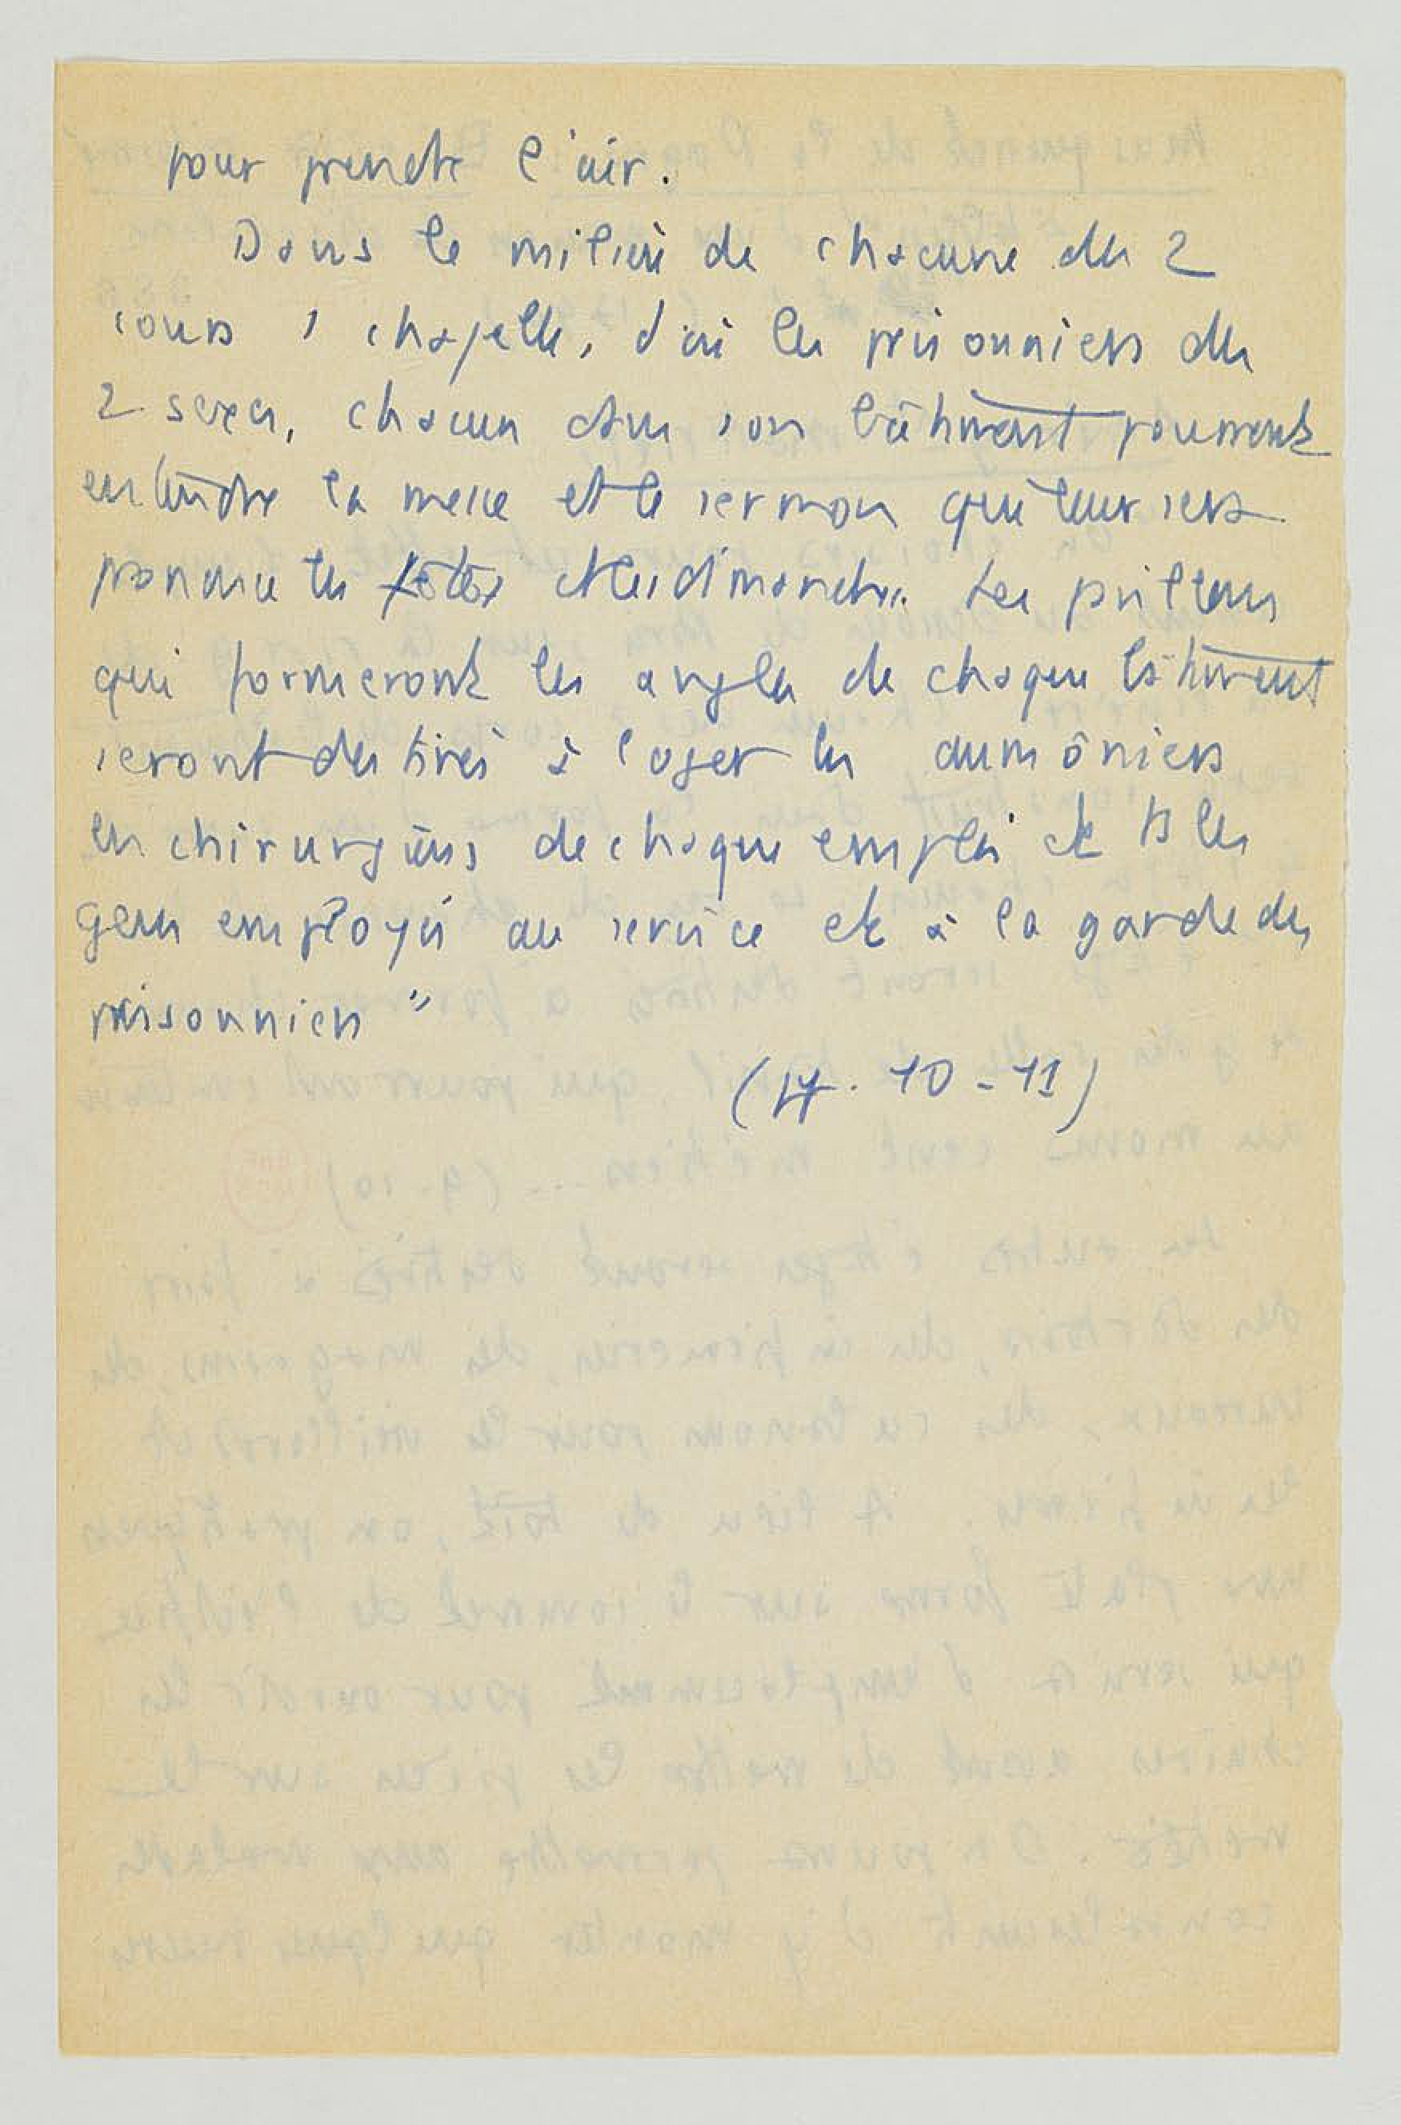 pour prendre l'air.
Dans le milieu de chacune des 2
cours 1 chapelle, d'où les prisonniers des
2 sexes, chacun dans son bâtiment pourront
entendre la messe et le sermon qui leur sera
les fêtes et les dimanches. Les pavillons
qui formeront les angles de chaque bâtiment
seront destinés à loger les aumôniers
les chirurgiens de chaque emploi et ts les
gens employés au service et à la garde des
prisonniers"
(17. 10-11)